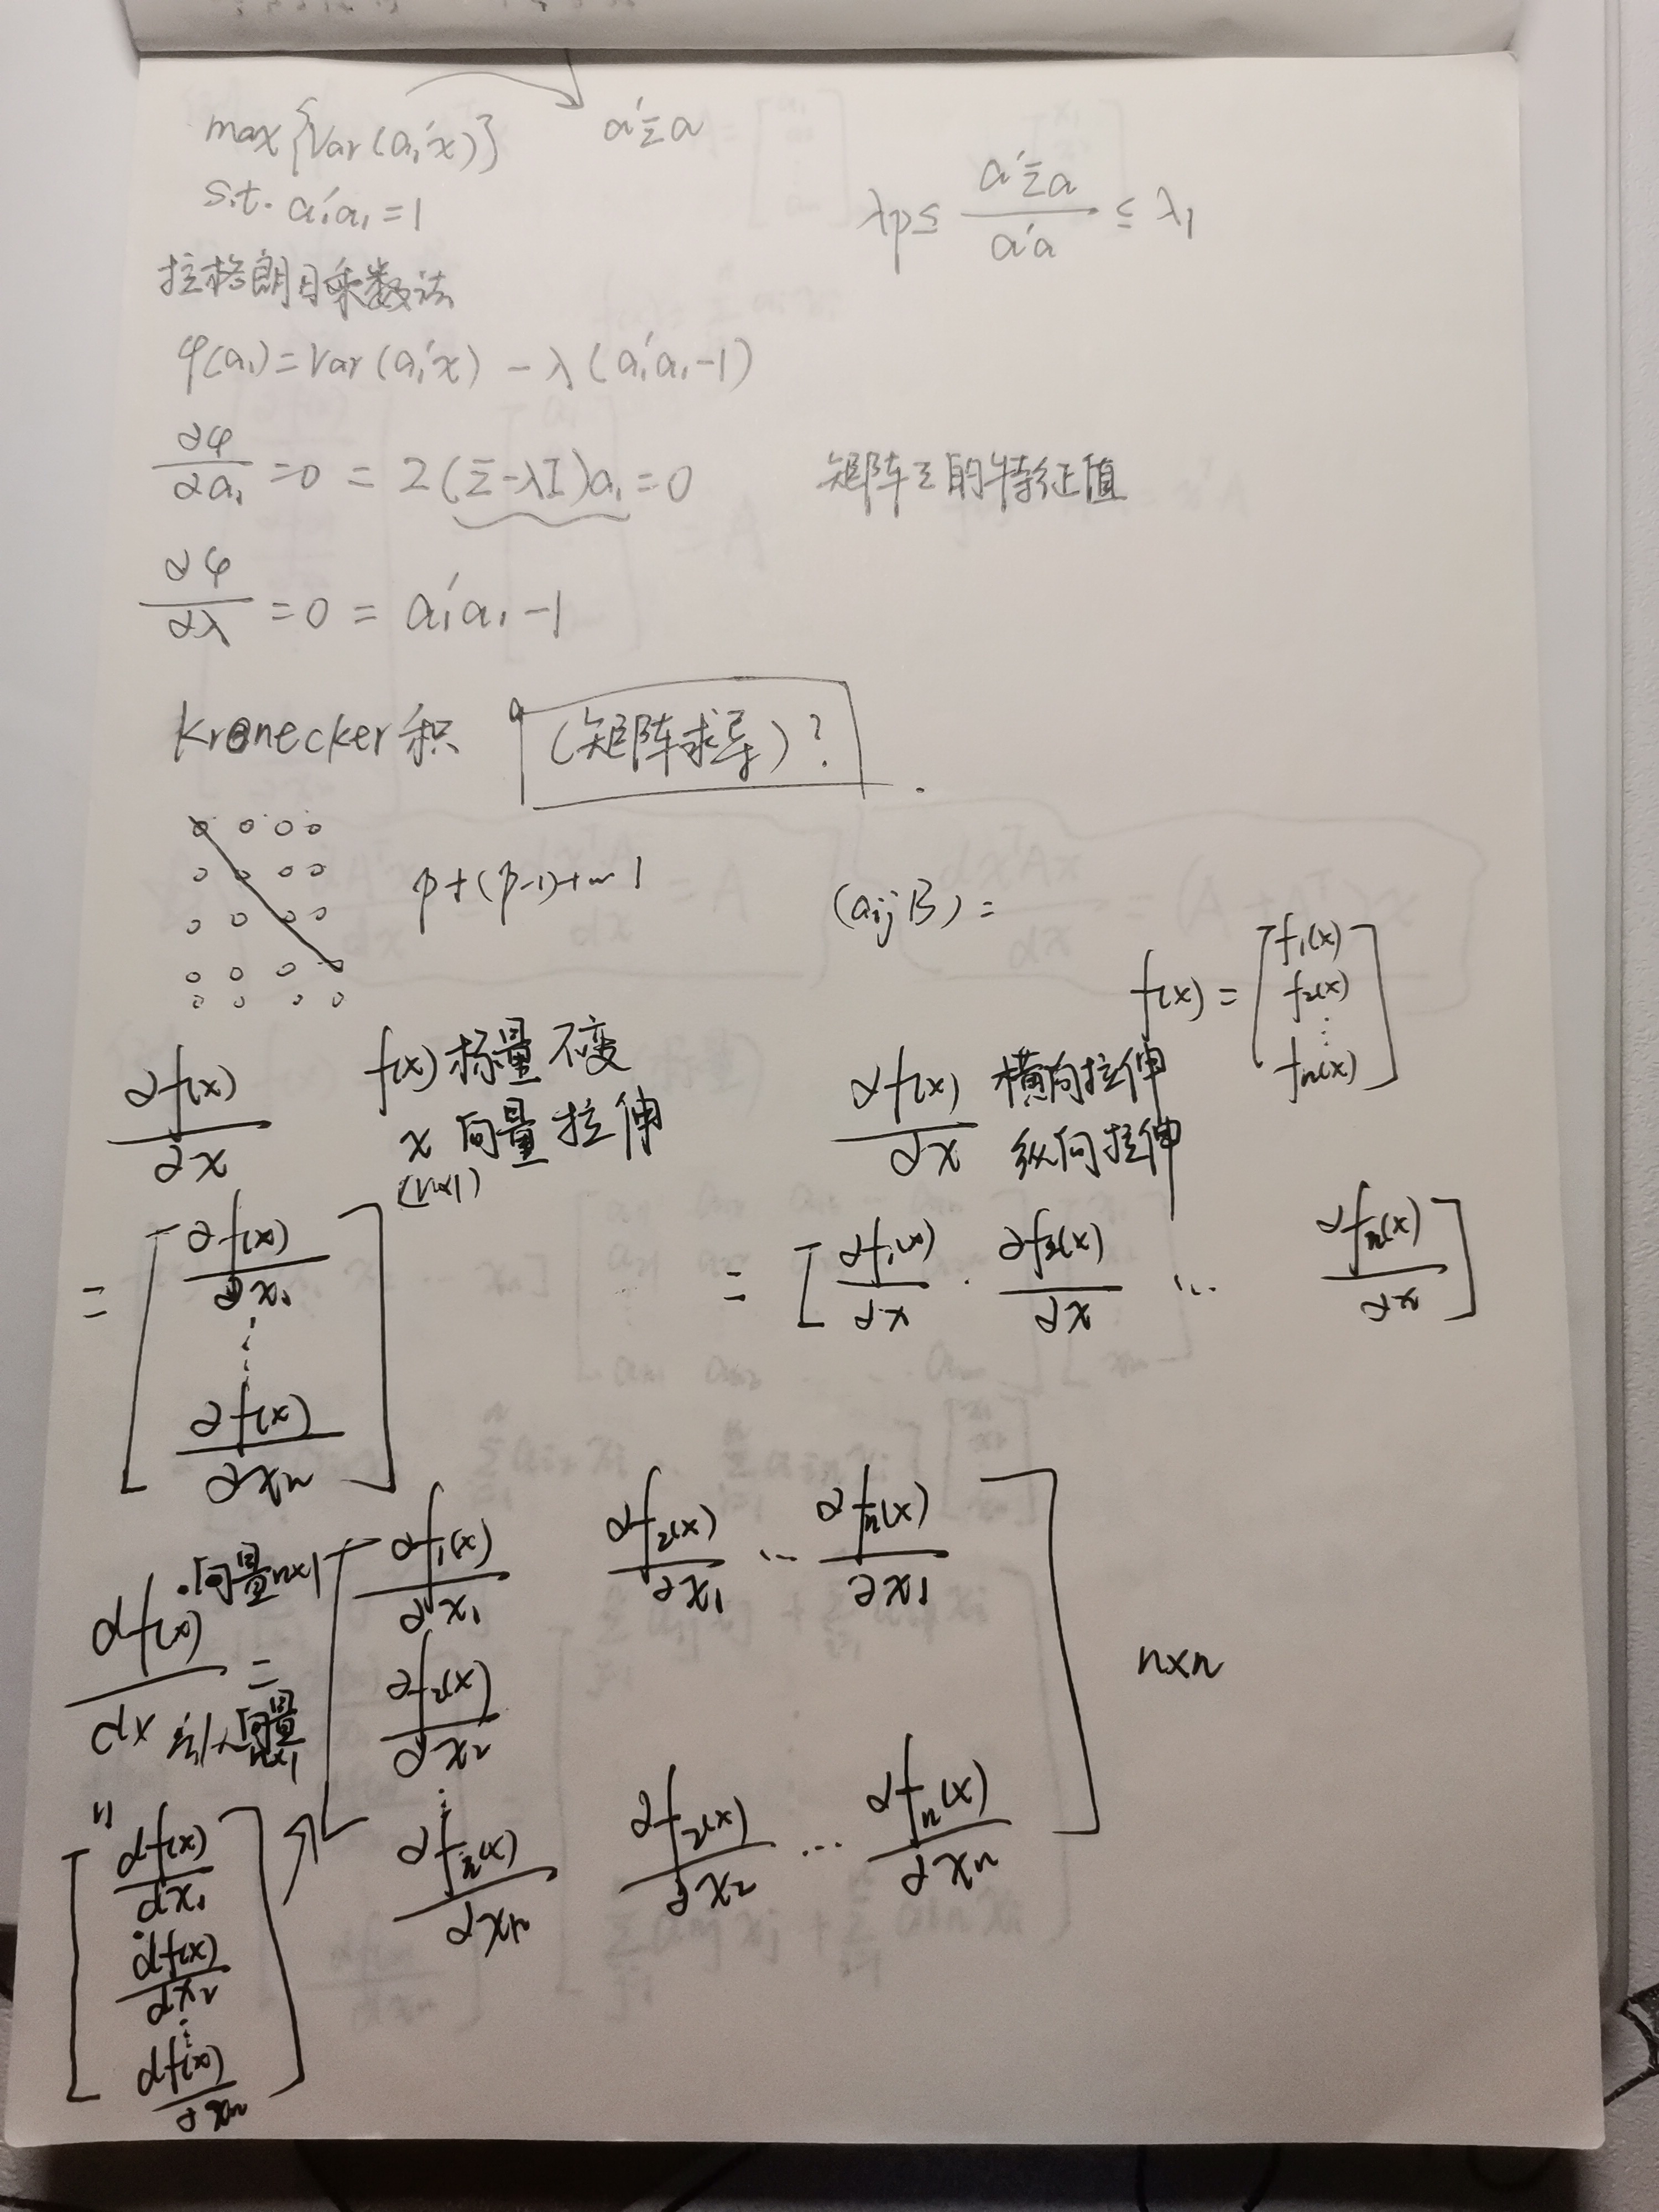 max{Var(a₁'x)} a'Σa
s.t. a₁'a₁=1
λp≤ a'Σa / a'a ≤ λ₁
拉格朗日乘数法
φ(a₁)=Var(a₁'x) - λ(a₁'a₁-1)
∂φ/∂a₁ =0 = 2(Σ-λI)a₁=0 矩阵Σ的特征值
∂φ/∂λ =0 = a₁'a₁-1
Kronecker积 (矩阵求导)?
p+(p-1)+…1 (aijB) =
f(x) = [f₁(x) f₂(x) ⋮ fn(x)]
∂f(x)/∂x f(x)标量不变
x 向量拉伸
(n×1)
∂f(x)/∂x 横向拉伸
纵向拉伸
= [∂f(x)/∂x₁ ⋮ ∂f(x)/∂xn]
= [∂f₁(x)/∂x · ∂f₂(x)/∂x … ∂fn(x)/∂x]
df(x)/dx = 向量n×1
向量n×1
[∂f₁(x)/∂x₁ ∂f₂(x)/∂x₁ … ∂fn(x)/∂x₁
∂f₂(x)/∂x₂
⋮
∂fn(x)/∂xn ∂f₂(x)/∂x₂ … ∂fn(x)/∂xn] n×n
[df(x)/dx₁
df(x)/dx₂
⋮
df(x)/∂xn]